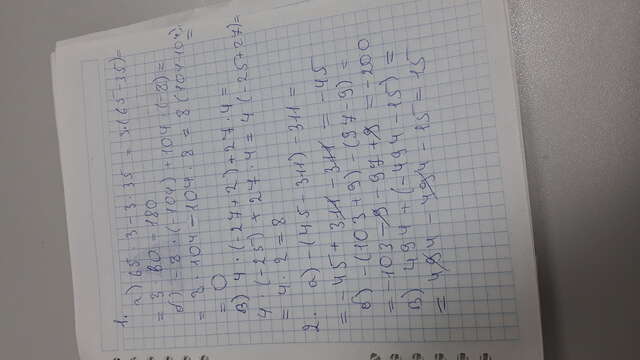 1.
а) 65 · 3 - 3 · 35 = 3·(65-35)=
= 3 · 60 = 180
б) -8 · (-104) + 104 · (-8) =
= 8 · 104 - 104 · 8 = 8 (104-104)
=
= 0
в) 4 · (-27+2) + 27 · 4 =
4 · (-25) + 27 · 4 = 4 (-25+27)=
= 4 · 2 = 8
2. а) -(45-311) - 311 =
= -45 + 311 - 311 = -45
б) -(103+9) - (97-9) =
= -103 - 9 - 97 + 9 = -200
в) 494 + (-494 - 15) =
= 494 - 494 - 15 = 15